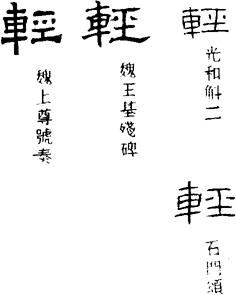 輕
光和斛二
輕
石門頌
輕
魏王基殘碑
輕
魏上尊號奏